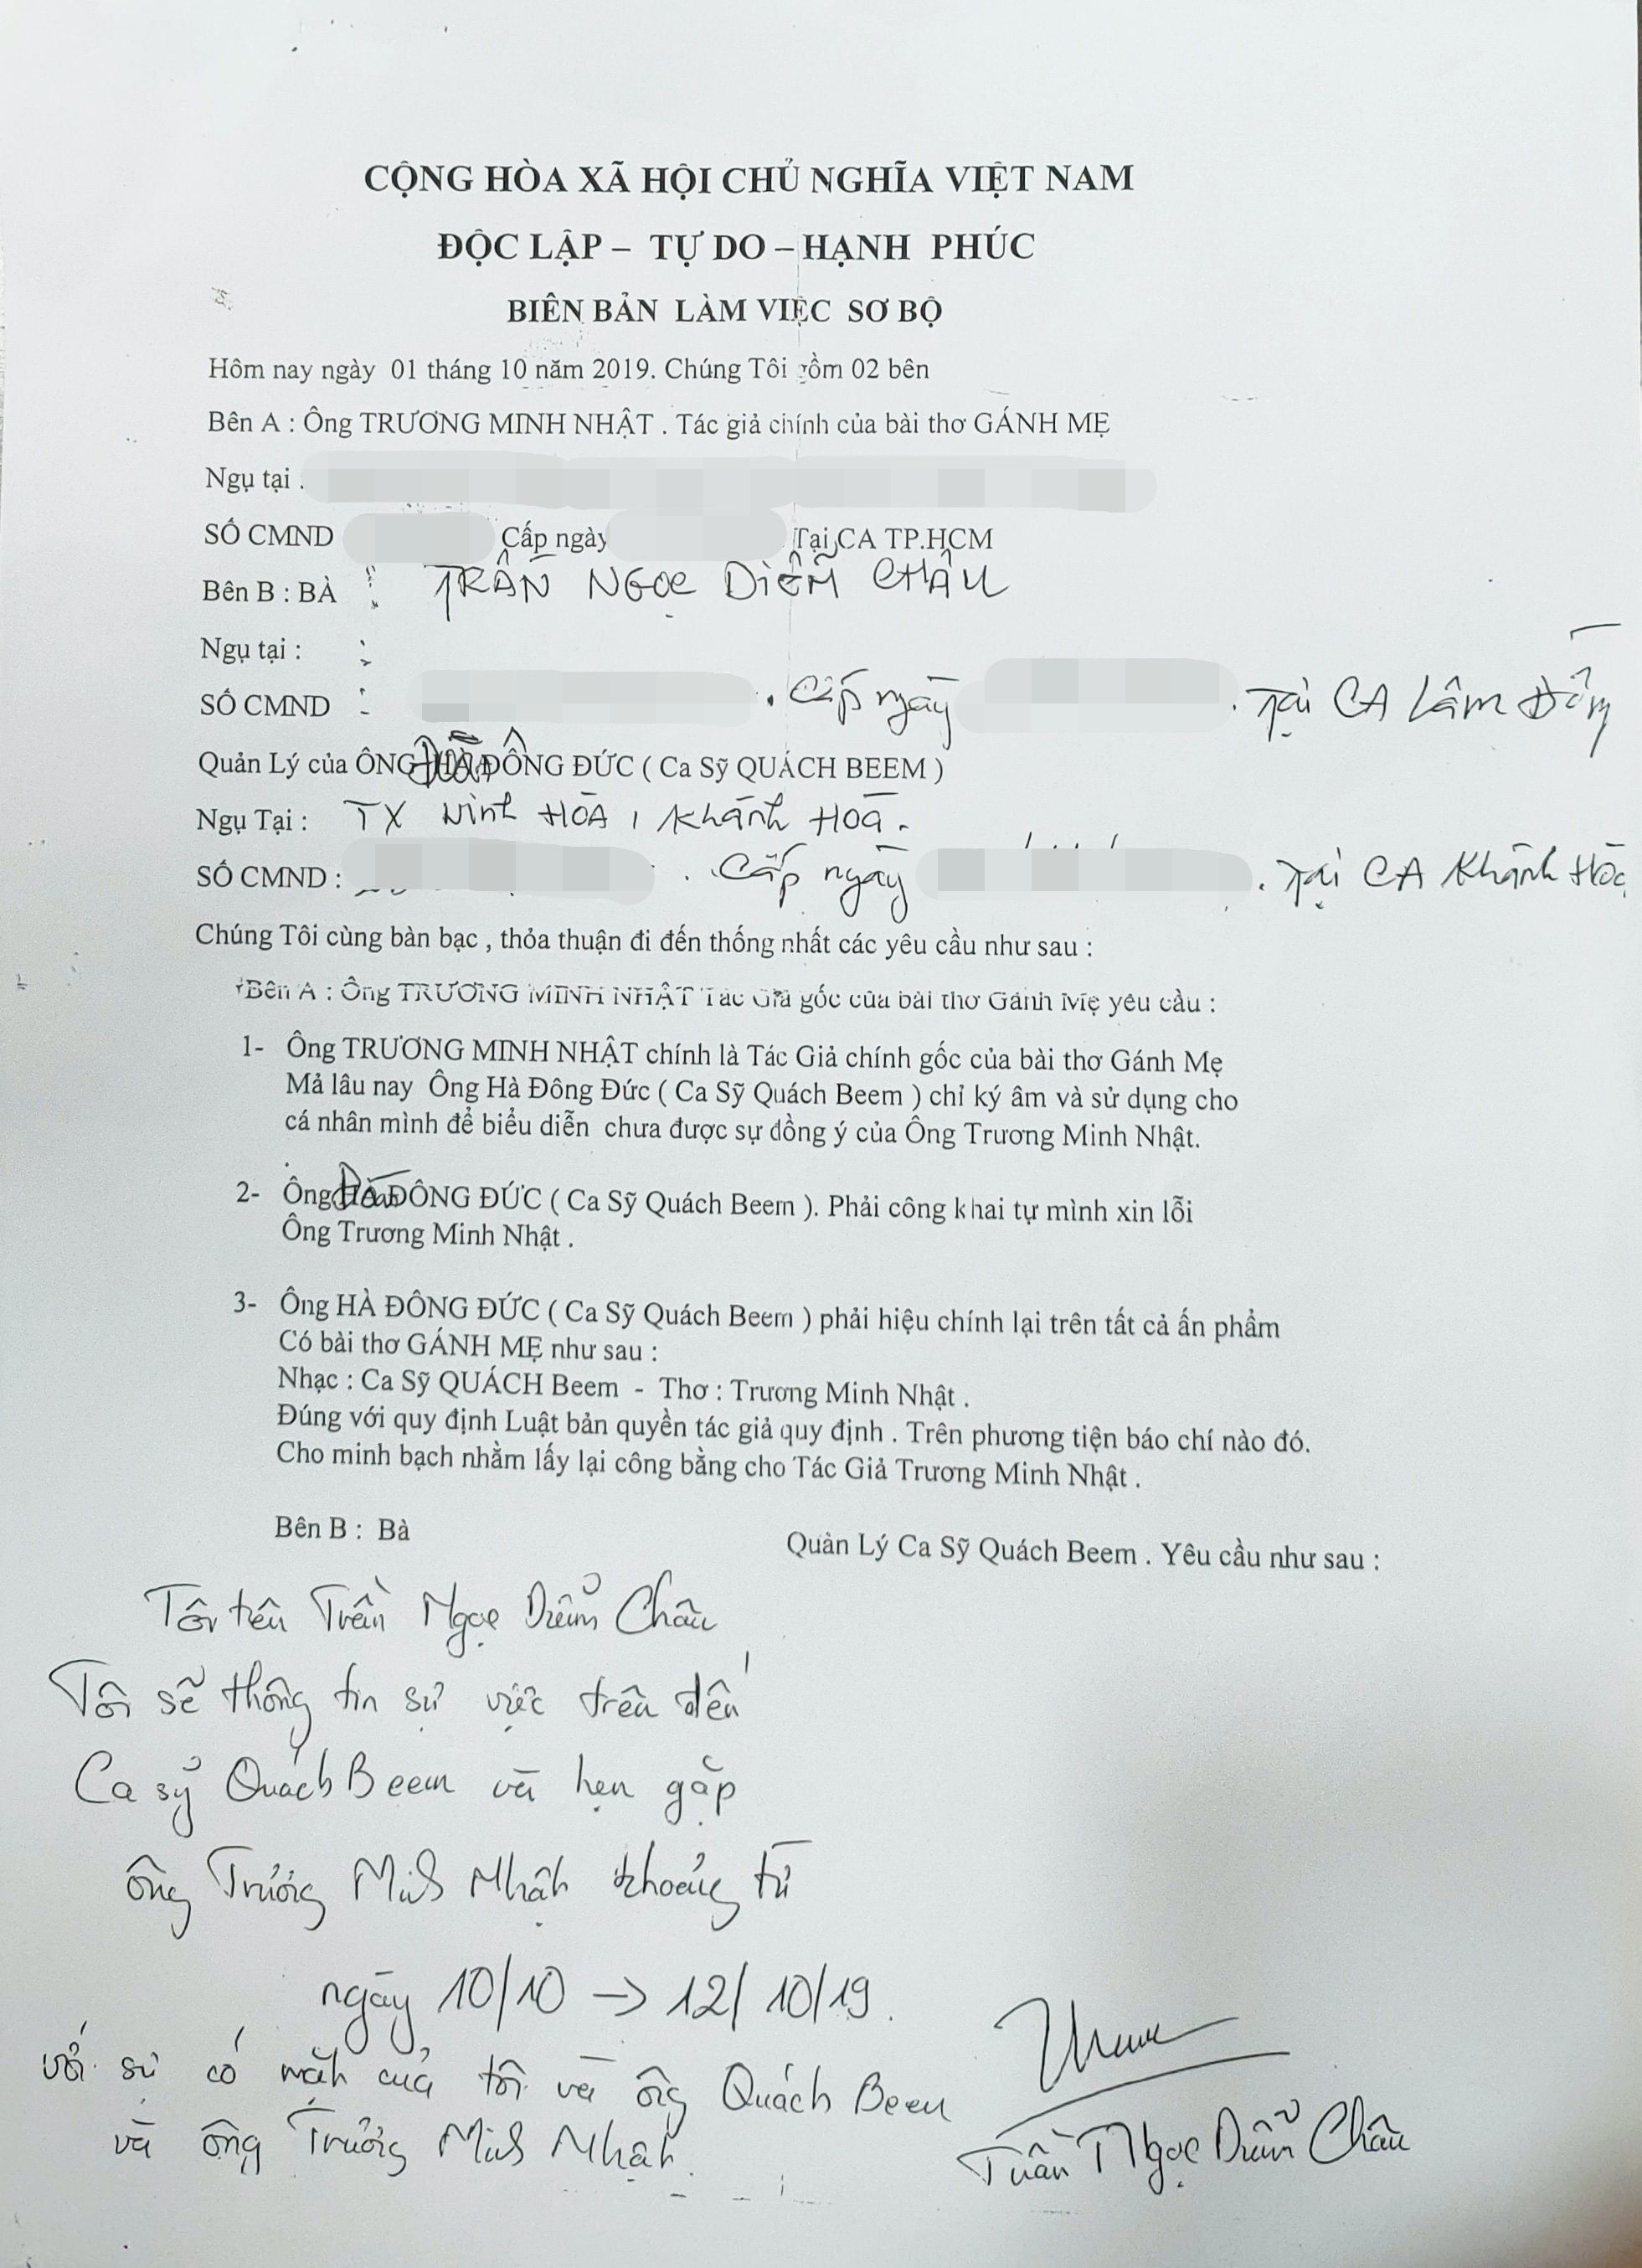 CỘNG HÒA XÃ HỘI CHỦ NGHĨA VIỆT NAM
ĐỘC LẬP – TỰ DO – HẠNH PHÚC
BIÊN BẢN LÀM VIỆC SƠ BỘ
Hôm nay ngày 01 tháng 10 năm 2019. Chúng Tôi gồm 02 bên
Bên A : Ông TRƯƠNG MINH NHẬT . Tác giả chính của bài thơ GÁNH MẸ
Ngụ tại .
SỐ CMND Cấp ngày Tại CA TP.HCM
Bên B : BÀ : TRẦN NGỌC DIỄM CHÂU
Ngụ tại : :
SỐ CMND : . Cấp ngày . Tại CA Lâm Đồng
Quản Lý của ÔNG ĐOÀN ĐÔNG ĐỨC ( Ca Sỹ QUÁCH BEEM )
Ngụ Tại : TX Ninh HÒA , Khánh Hòa .
SỐ CMND : . Cấp ngày . Tại CA Khánh Hòa
Chúng Tôi cùng bàn bạc , thỏa thuận đi đến thống nhất các yêu cầu như sau :
*Bên A : Ông TRƯƠNG MINH NHẬT Tác Giả gốc của bài thơ Gánh Mẹ yêu cầu :
1- Ông TRƯƠNG MINH NHẬT chính là Tác Giả chính gốc của bài thơ Gánh Mẹ
Mả lâu nay Ông Hà Đông Đức ( Ca Sỹ Quách Beem ) chỉ ký âm và sử dụng cho
cá nhân mình để biểu diễn chưa được sự đồng ý của Ông Trương Minh Nhật.
2- Ông Đoàn ĐÔNG ĐỨC ( Ca Sỹ Quách Beem ). Phải công khai tự mình xin lỗi
Ông Trương Minh Nhật .
3- Ông HÀ ĐÔNG ĐỨC ( Ca Sỹ Quách Beem ) phải hiệu chính lại trên tất cả ấn phẩm
Có bài thơ GÁNH MẸ như sau :
Nhạc : Ca Sỹ QUÁCH Beem - Thơ : Trương Minh Nhật .
Đúng với quy định Luật bản quyền tác giả quy định . Trên phương tiện báo chí nào đó.
Cho minh bạch nhằm lấy lại công bằng cho Tác Giả Trương Minh Nhật .
Bên B : Bà Quản Lý Ca Sỹ Quách Beem . Yêu cầu như sau :
Tôi tên Trần Ngọc Diễm Châu
Tôi sẽ thông tin sự việc trên đến
Ca sỹ Quách Beem và hẹn gặp
ông Trương Minh Nhật khoảng từ
ngày 10/10 -> 12/10/19.
với sự có mặt của tôi và ông Quách Beem
và ông Trương Minh Nhật.
Trần Ngọc Diễm Châu